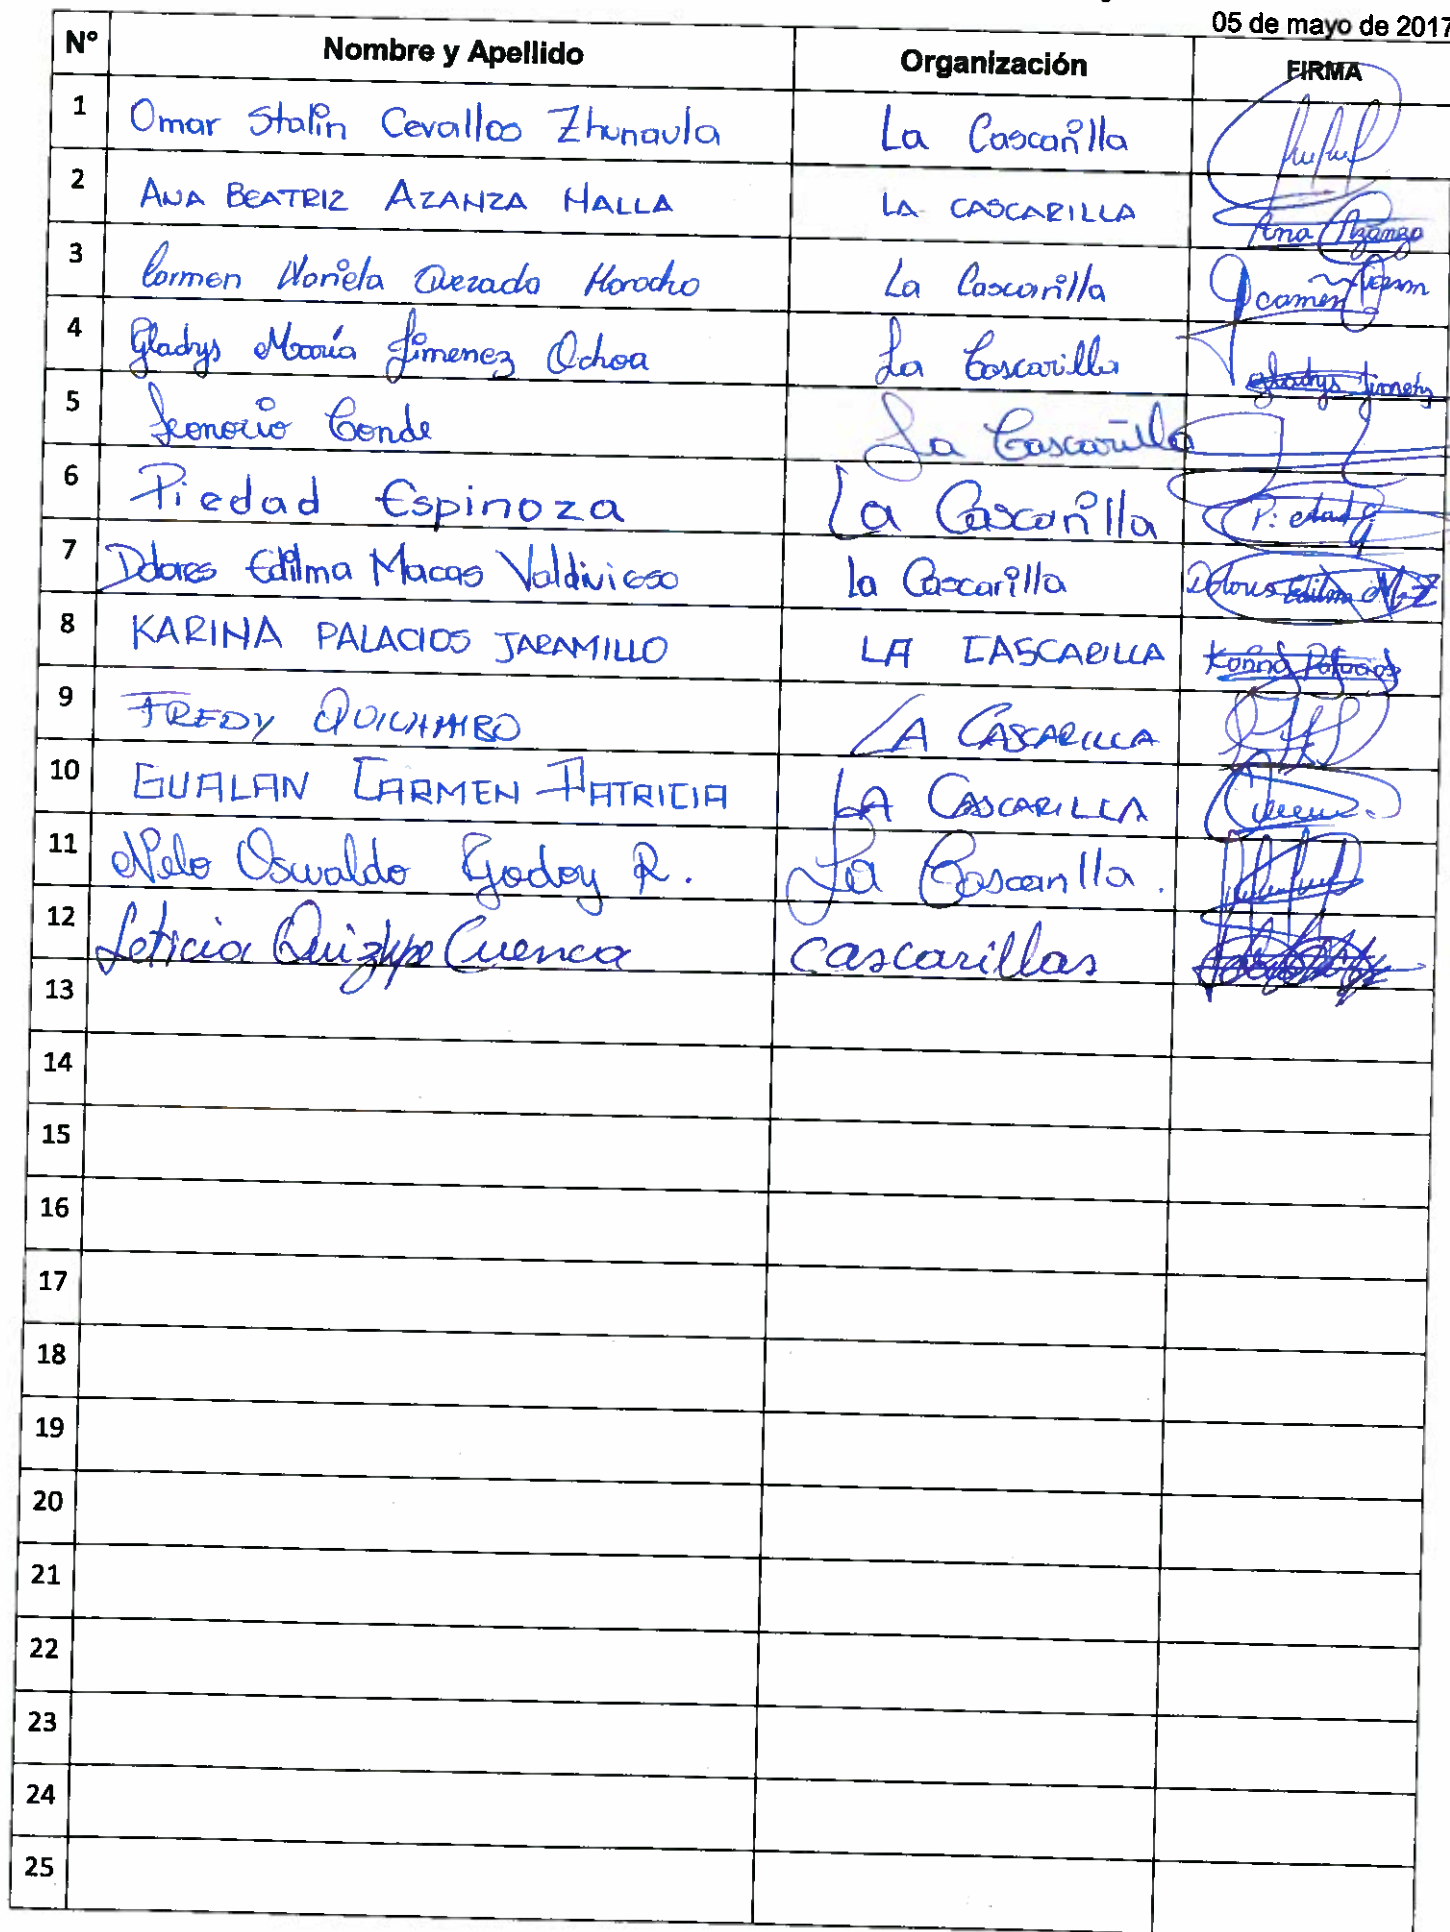 05 de mayo de 2017
N° Nombre y Apellido Organización FIRMA
1 Omar Stalin Cevallos Zhunaula La Cascarilla
2 ANA BEATRIZ AZANZA MALLA LA CASCARILLA Ana Azanza
3 Carmen Mariela Quezada Morocho La Cascarilla carmen
4 Gladys María Jimenez Ochoa La Cascarilla Gladys Jimenez
5 Conde La Cascarilla
6 Piedad Espinoza La Cascarilla Piedad
7 Dolores Edilma Macas Valdivieso la Cascarilla Dolores Edilma
8 KARINA PALACIOS JARAMILLO LA CASCARILLA Karina Palacios
9 FREDY LA CASCARILLA
10 GUALAN CARMEN PATRICIA LA CASCARILLA
11 Oswaldo Godoy R. La Cascarilla.
12 Leticia Cuenca cascarillas
13
14
15
16
17
18
19
20
21
22
23
24
25